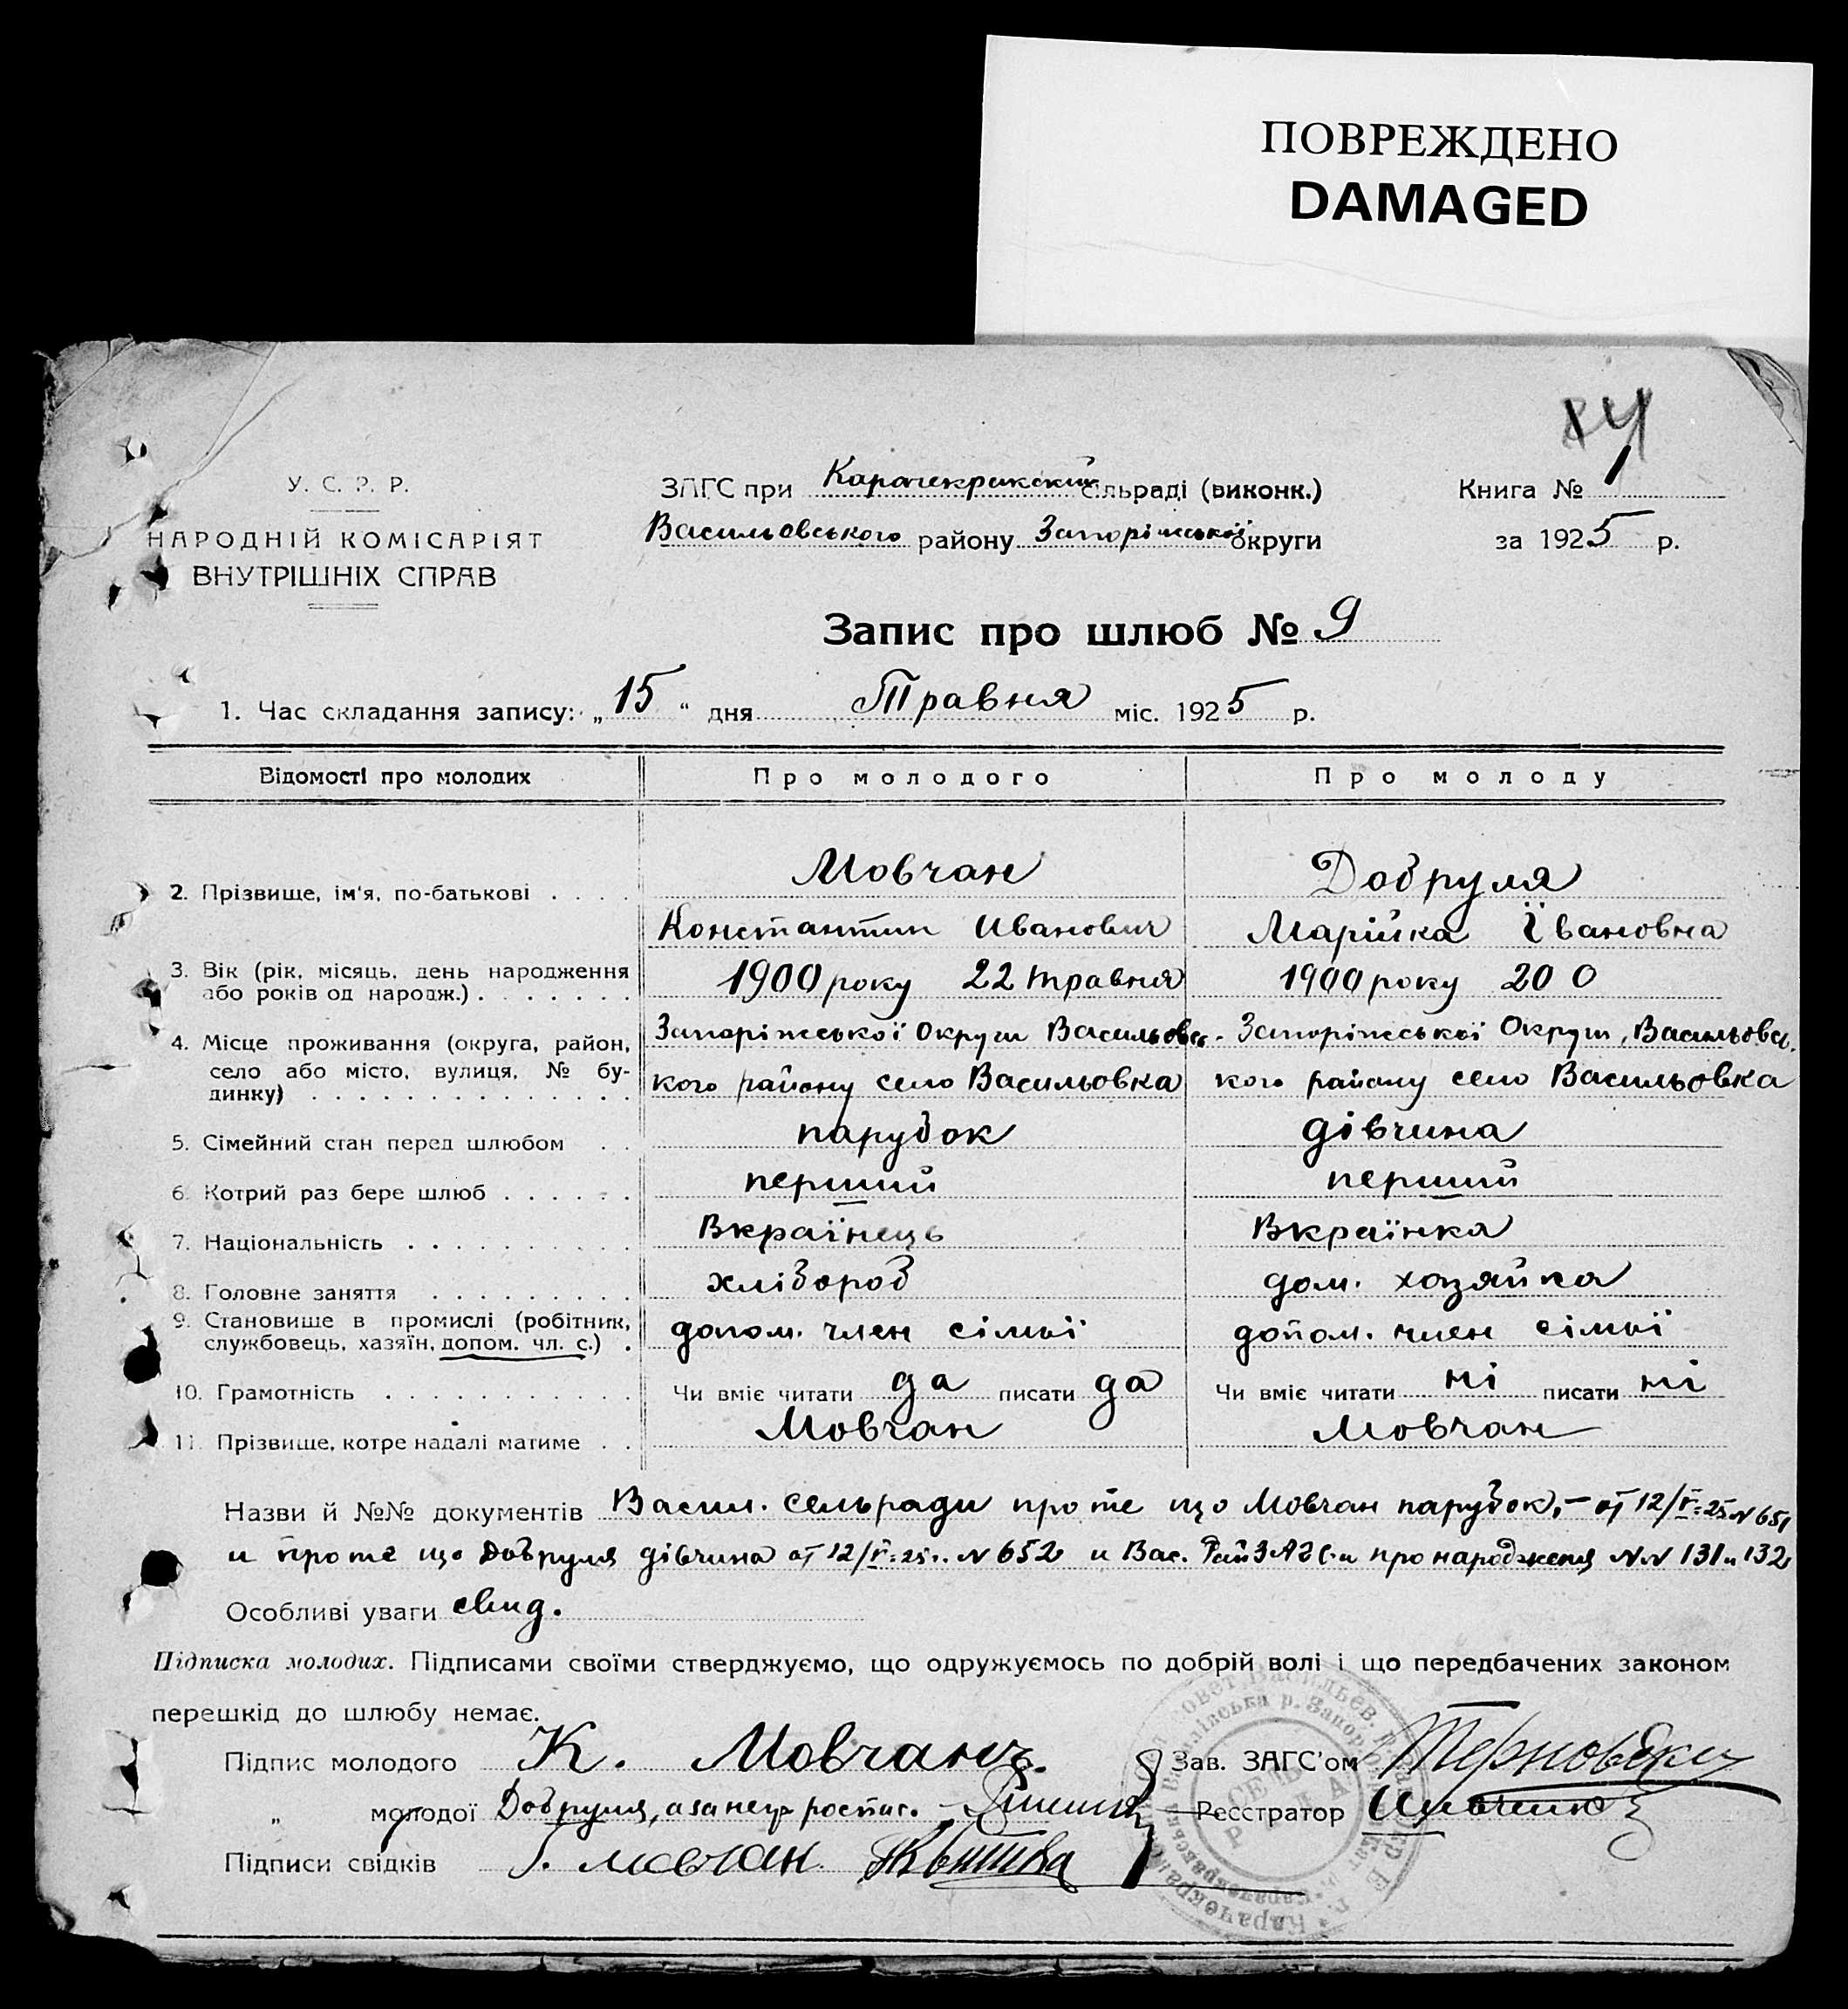 ПОВРЕЖДЕНО
DAMAGED
У. С. Р. Р.
НАРОДНІЙ КОМІСАРІЯТ
ВНУТРІШНІХ СПРАВ
ЗАГС при Карачекракский сільраді (виконк.)
Васильовського району Запоріжської округи
Книга №
за 1925 р.
Запис про шлюб № 9
1. Час складання запису: „15“ дня Травня міс. 1925 р.
Відомості про молодих Про молодого Про молоду
2. Прізвище, ім'я, по-батькові Мовчан Добруля
Константин Иванович Марійка Івановна
3. Вік (рік, місяць, день народження або років од народж.) 1900 року 22 травня 1900 року 20 0
4. Місце проживання (округа, район, село або місто, вулиця, № будинку)
Запоріжської Округи Васильовс- Запоріжської Округи, Васильовсь-
кого району село Васильовка кого району село Васильовка
5. Сімейний стан перед шлюбом парубок дівчина
6. Котрий раз бере шлюб перший перший
7. Національність Вкраїнець Вкраїнка
8. Головне заняття хлібороб дом. хозяйка
9. Становище в промислі (робітник, службовець, хазяїн, допом. чл. с.) допом. член сімьї допом. член сімьї
10. Грамотність Чи вміє читати да писати да Чи вміє читати ні писати ні
11. Прізвище, котре надалі матиме Мовчан Мовчан
Назви й №№ документів Васил. сельради про те що Мовчан парубок, – от 12/V-25 N 651
и про те що Добруля дівчина от 12/V-25г. N 652 и Вас. РайЗАГС-и про народження NN 131 и 132
Особливі уваги свид.
Підписка молодих. Підписами своїми стверджуємо, що одружуємось по добрій волі і що передбачених законом
перешкід до шлюбу немає.
Підпис молодого К. Мовчанъ.
„ молодої Добруля, а за неи роспис.
Підписи свідків Мовчан
Зав. ЗАГС'ом
Реєстратор